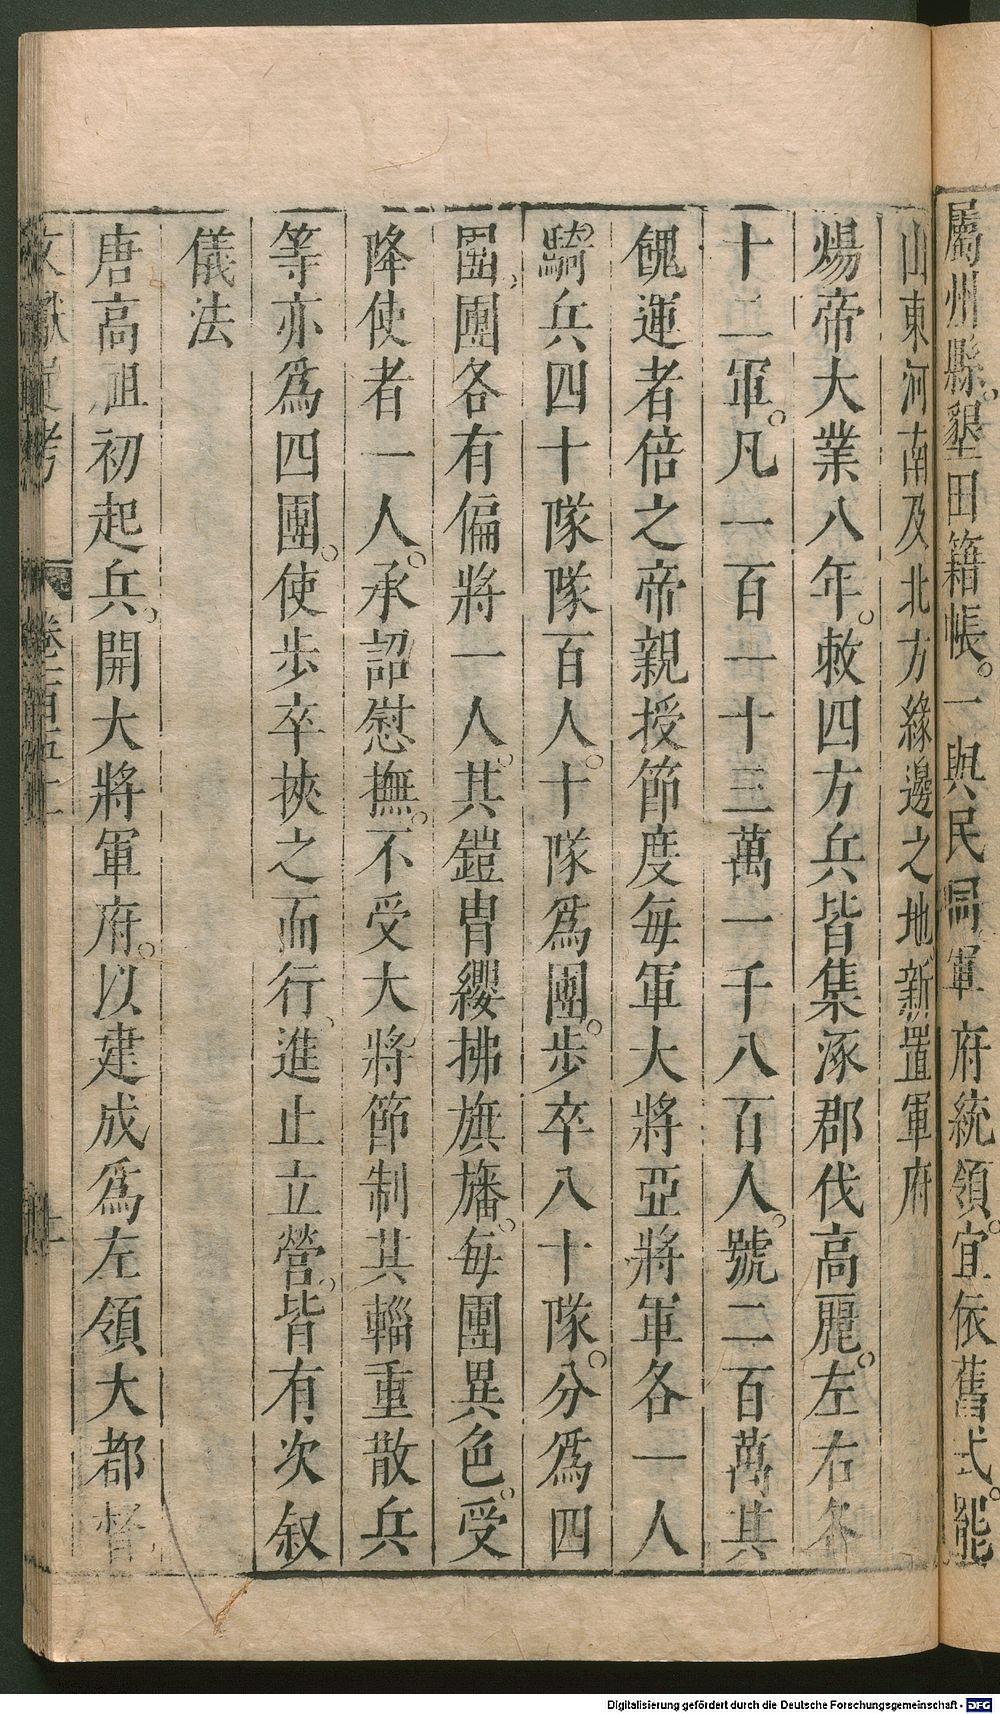 屬州縣墾田籍帳。一與民同軍府統領。宜依舊式。罷
山東河南及北方緣邊之地新置軍府
煬帝大業八年。敕四方兵皆集涿郡伐高麗。左右各
十二軍。凡一百一十三萬一千八百人。號二百萬其
餽運者倍之帝親授節度每軍大將亞將軍各一人
騎兵四十隊隊百人。十隊爲團。步卒八十隊。分爲四
團。團各有偏將一人。其鎧胄纓拂旗旛。每團異色。受
降使者一人。承詔慰撫。不受大將節制其輜重散兵
等亦爲四團。使步卒挾之而行、進止立營。皆有次叙
儀法
唐高祖初起兵。開大將軍府。以建成爲左領大都督
文獻通考 卷一百五十一
Digitalisierung gefördert durch die Deutsche Forschungsgemeinschaft - DFG